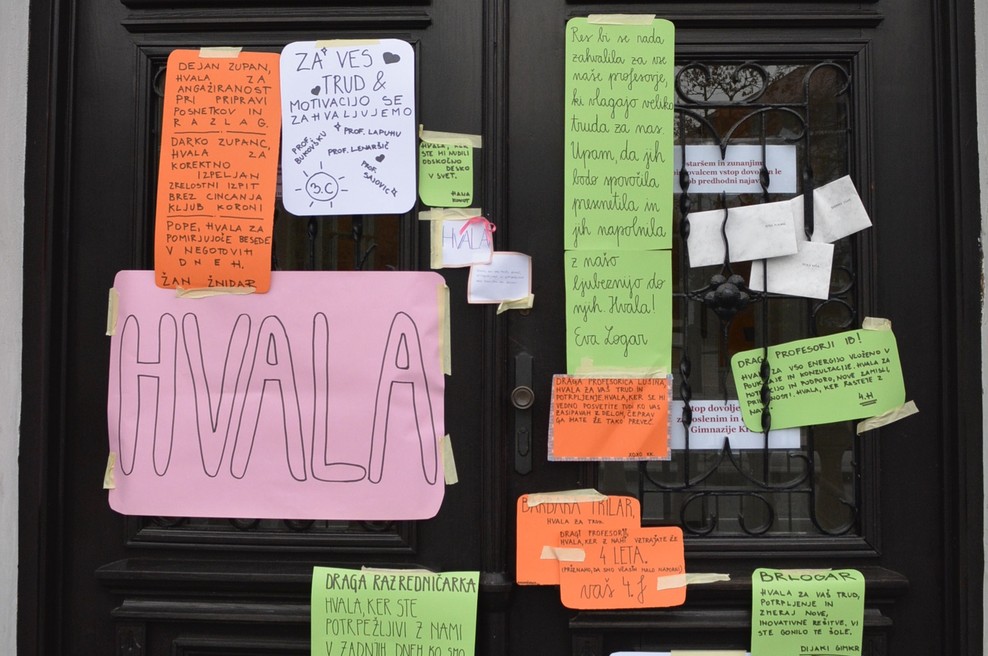 DEJAN ZUPAN,
HVALA ZA
ANGAŽIRANOST
PRI PRIPRAVI
POSNETKOV IN
RAZLAG.
DARKO ZUPANC,
HVALA ZA
KOREKTNO
IZPELJAN
ZRELOSTNI IZPIT
BREZ CINCANJA
KLJUB KORONI
POPE, HVALA ZA
POMIRJUJOČE BESEDE
V NEGOTOVIH
DNEH.
ŽAN ŽNIDAR
ZA VES
TRUD &
MOTIVACIJO SE
ZAHVALJUJEMO
PROF. BUKOVŠKU
PROF. LAPUHU
PROF. LENARŠIČ
PROF. SAJOVIC
3.C
HVALA, KER
STE MI NUDILI
ODSKOČNO
DESKO
V SVET.
HVALA
HVALA
Res bi se rada
zahvalila za vse
naše profesorje,
ki vlagajo veliko
truda za nas.
Upam, da jih
bodo spovočila
presenetila in
jih napolnila
z našo
ljubeznijo do
njih. Hvala!
Eva Logar
staršem in zunanjim
vstop dovoljen le
ob predhodni najavi
DRAGI PROFESORJI IB!
HVALA ZA VSO ENERGIJO VLOŽENO V
POUK IN KONZULTACIJE. HVALA ZA
MOTIVACIJO IN PODPORO, NOVE ZAMISLI,
HVALA, KER RASTETE Z
NAMI.
4.H
DRAGA PROFESORICA LUŠINA,
HVALA ZA VAŠ TRUD IN
POTRPLJENJE. HVALA, KER SE MI
VEDNO POSVETITE TUDI KO VAS
ZASIPAVAM Z DELOM, ČEPRAV
GA IMATE ŽE TAKO PREVEČ.
vstop dovoljen
zaposlenim in
Gimnazije
BARBARA TRILAR,
HVALA ZA TRUD.
DRAGI PROFESORJI,
HVALA, KER Z NAMI VZTRAJATE ŽE
4 LETA.
(PRIZNAMO, DA SMO VČASIH MALO NAPORNI)
vaš 4.f
DRAGA RAZREDNIČARKA
HVALA, KER STE
POTRPEŽLJIVI Z NAMI
V ZADNJIH DNEH KO SMO
BRLOGAR
HVALA ZA VAŠ TRUD,
POTRPLJENJE IN
ZMERAJ NOVE,
INOVATIVNE REŠITVE. VI
STE GONILO TE ŠOLE.
DIJAKI GIMKR